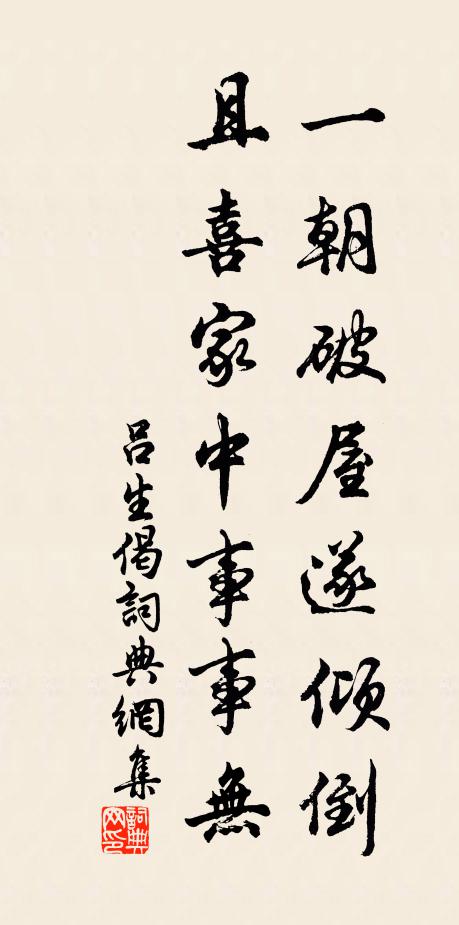 一朝破屋遂傾倒
且喜家中事事無
呂生偈詞典網集
詞典網印